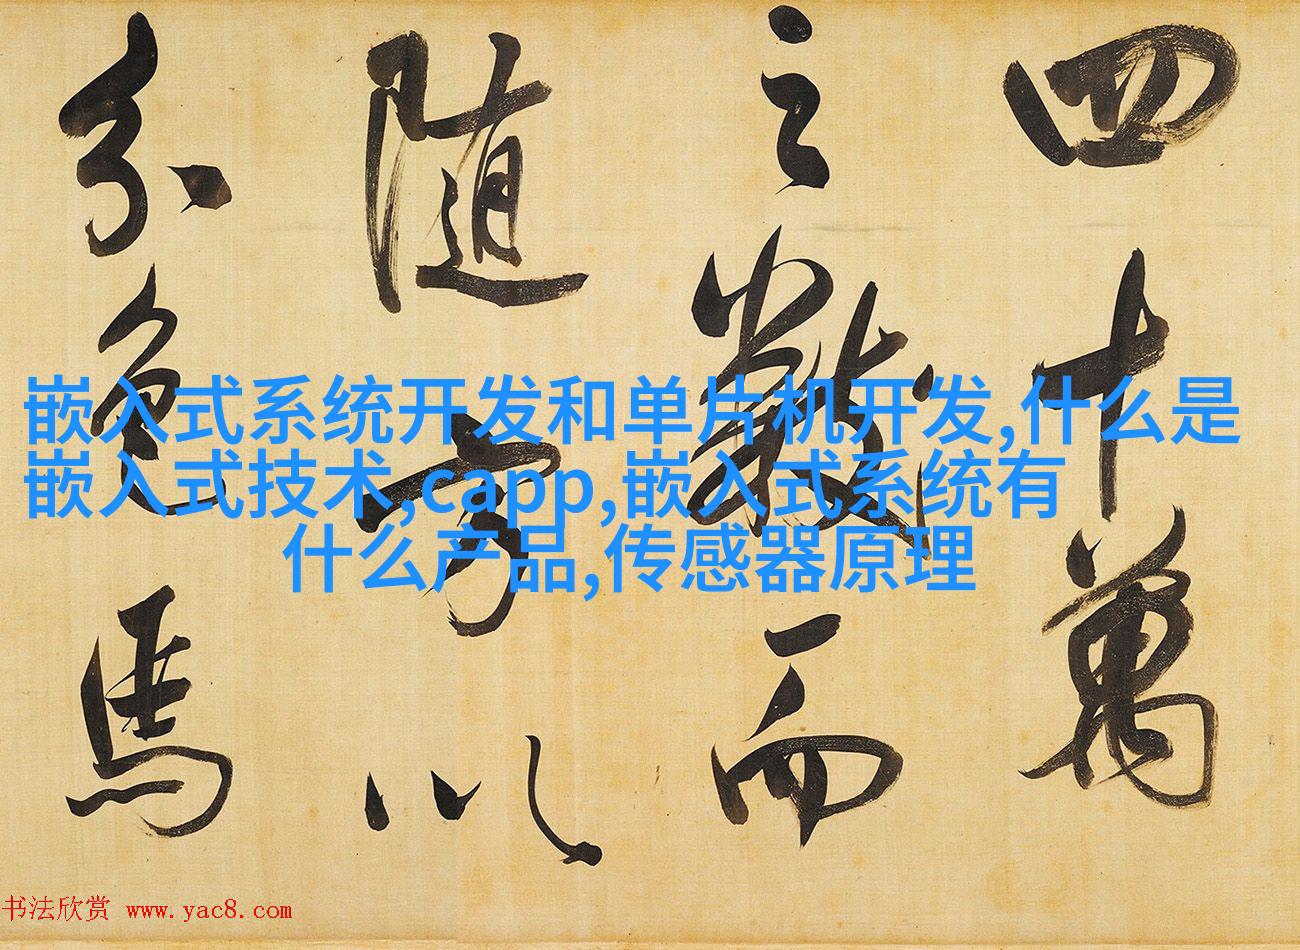 四十萬
之數而
随方以
分色馬
嵌入式系统开发和单片机开发,什么是
嵌入式技术,capp,嵌入式系统有
什么产品,传感器原理
书法欣赏 www.yac8.com